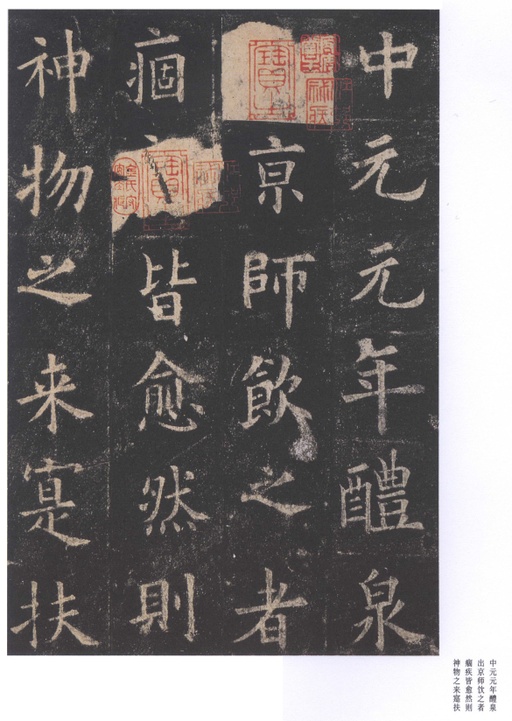 中元元年醴泉
亰師飲之者
痼皆愈然則
神物之来寔扶
中元元年醴泉
出京师饮之者
痼疾皆愈然则
神物之来寔扶